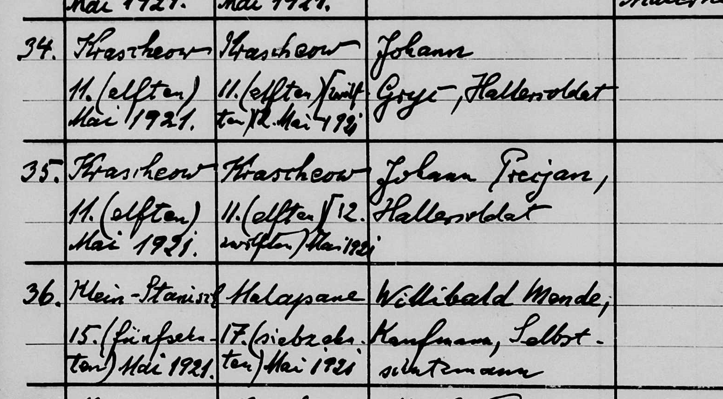 Mai 1921. Mai 1921.
34. Krascheow Krascheow Johann
11. (elften) 11. (elften) [zwölf- Gryc, Hallersoldat
Mai 1921. ten) 12. Mai 1921
35. Krascheow Krascheow Johann Trejan,
11. (elften) 11. (elften) [12. Hallersoldat
Mai 1921. zwölften) Mai 1921
36. Klein-Stanisch Malapane Willibald Mende,
15. (fünfzehn- 17. (siebzehn- Kaufmann, Selbst-
ten) Mai 1921. ten) Mai 1921 schutzmann